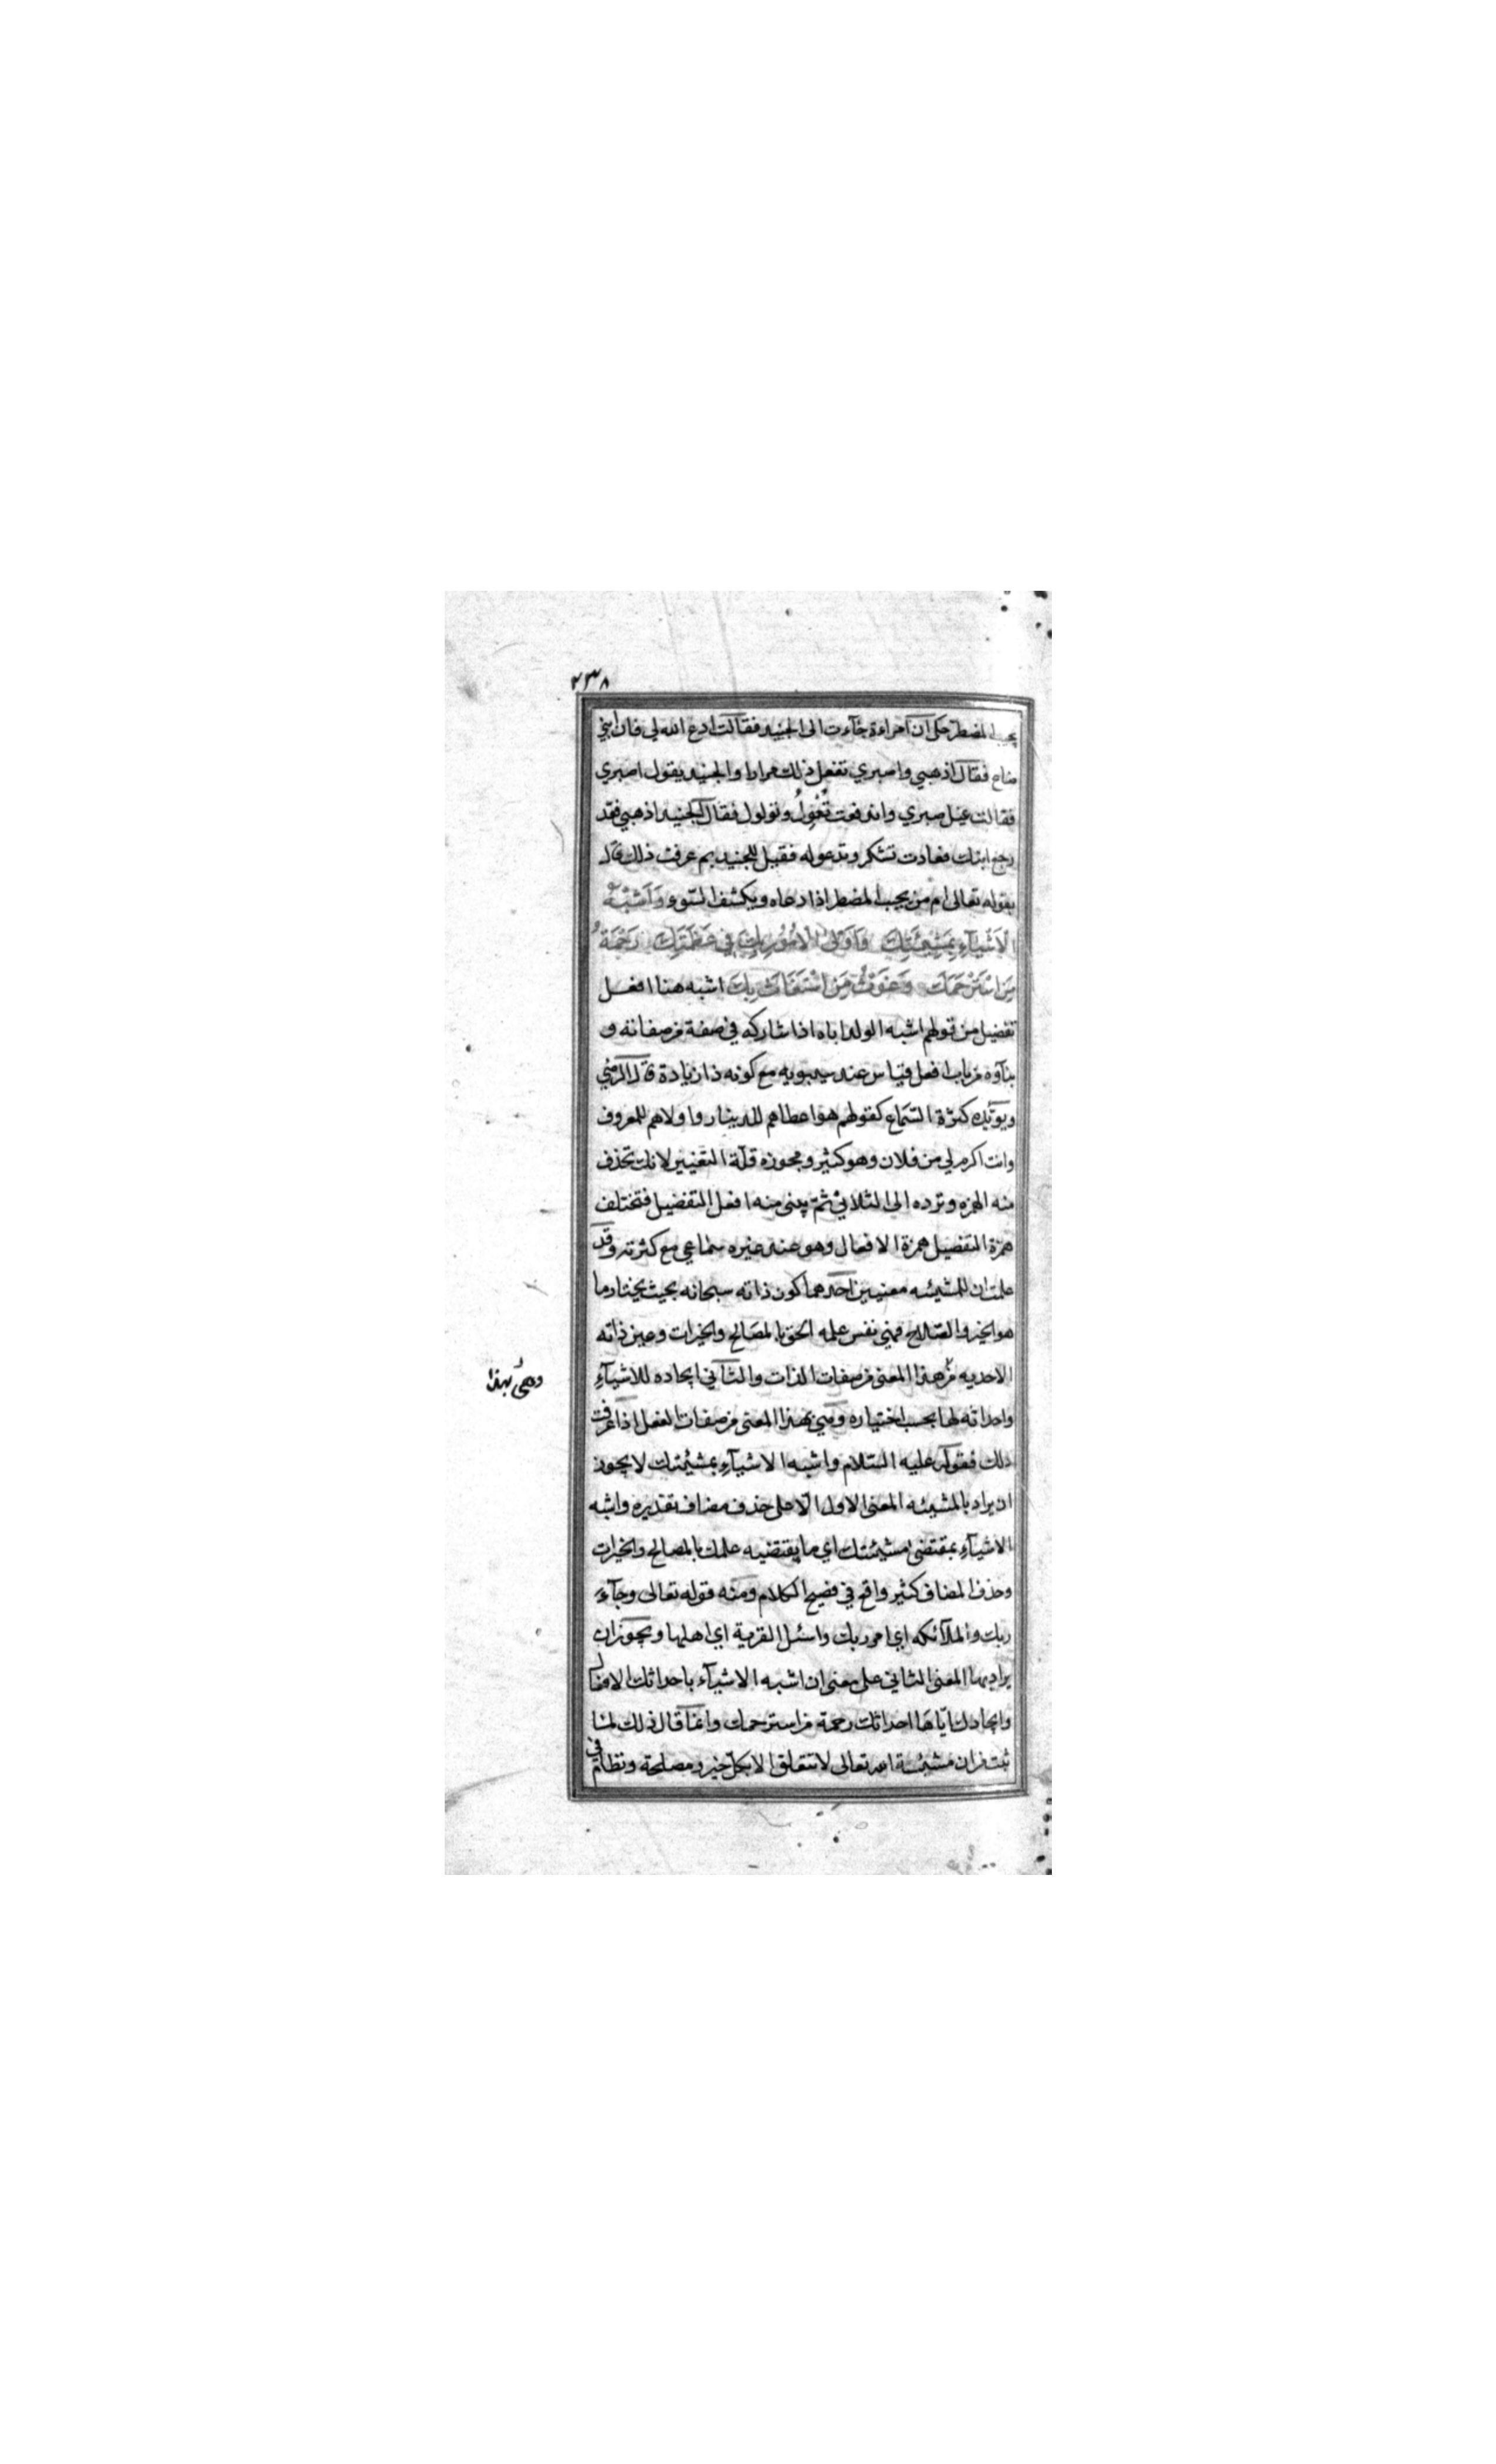 ٢٣٨
يجيب المضطر حكى ان امراءة جآءت الى الجنيد فقالت ادع الله لي فان ابني
ضاع فقال اذهبي واصبري تفعل ذلك مرارا والجنيد يقول اصبري
فقالت عيل صبري واندفعت تعول وتولول فقال الجنيد اذهبي فقد
رجع ابنك فعادت تشكر وتدعوله فقيل للجنيد بم عرفت ذلك قال
بقوله تعالى ام من يجيب المضطر اذا دعاه ويكشف السّوء وَاَشْبَهُ
الْاَشْيَآءِ بِمَشِيَّتِكَ وَاَوْلَى الْاُمُورِ بِكَ فِي عَظَمَتِكَ رَحْمَةُ
مَنِ اسْتَرْحَمَكَ وَغَوْثُ مَنِ اسْتَغَاثَ بِكَ اشبه هنا افعل
تفضيل من قولهم اشبه الولد اباه اذا شاركه في صفة من صفاته و
بنآؤه من باب افعل قياس عند سيبويه مع كونه ذا زيادة قال الرضي
ويؤيّده كثرة السّماع كقولهم هو اعطاهم للدينار واولاهم للمعروف
وانت اكرم لي من فلان وهو كثير ومجوزه قلّة التغيير لانك تحذف
منه الهمزه وترده الى الثلاثي ثم يبنى منه افعل التفضيل فتختلف
همزة التفضيل همزة الافعال وهو عند غيره سماعي مع كثرته وقد
علمت ان للمشيئه معنيين احدهما كون ذاته سبحانه بحيث يختار ما
هو الخير والصّلاح فهي نفس علمه الحق بالمصالح والخيرات وعين ذاته
الاحديه من هذا المعنى من صفات الذات والثّاني ايجاده للاشيآءِ
وهي بهذا
واحداثه لها بحسب اختياره وهي بهذا المعنى من صفات الفعل اذا عرفت
ذلك فقوله عليه السّلام واشبه الاشيآءِ بمشيئتك لا يجوز
ان يراد بالمشيئه المعنى الاول الّا على حذف مضاف تقديره واشبه
الاشيآءِ بمقتضى مشيئتك اي ما يقتضيه علمك بالمصالح والخيرات
وحذف المضاف كثير واقع في فصيح الكلام ومنه قوله تعالى وجآء
ربك والملآئكه اي امر ربك واسئل القرية اي اهلها ويجوز ان
يراد بها المعنى الثاني على معنى ان اشبه الاشيآء باحداثك الافعال
وايجادك ايّاها احداثك رحمة من استرحمك وانما قال ذلك لما
ثبت من ان مشيئة الله تعالى لا تتعلق الا بكل خير ومصلحة ونظام في